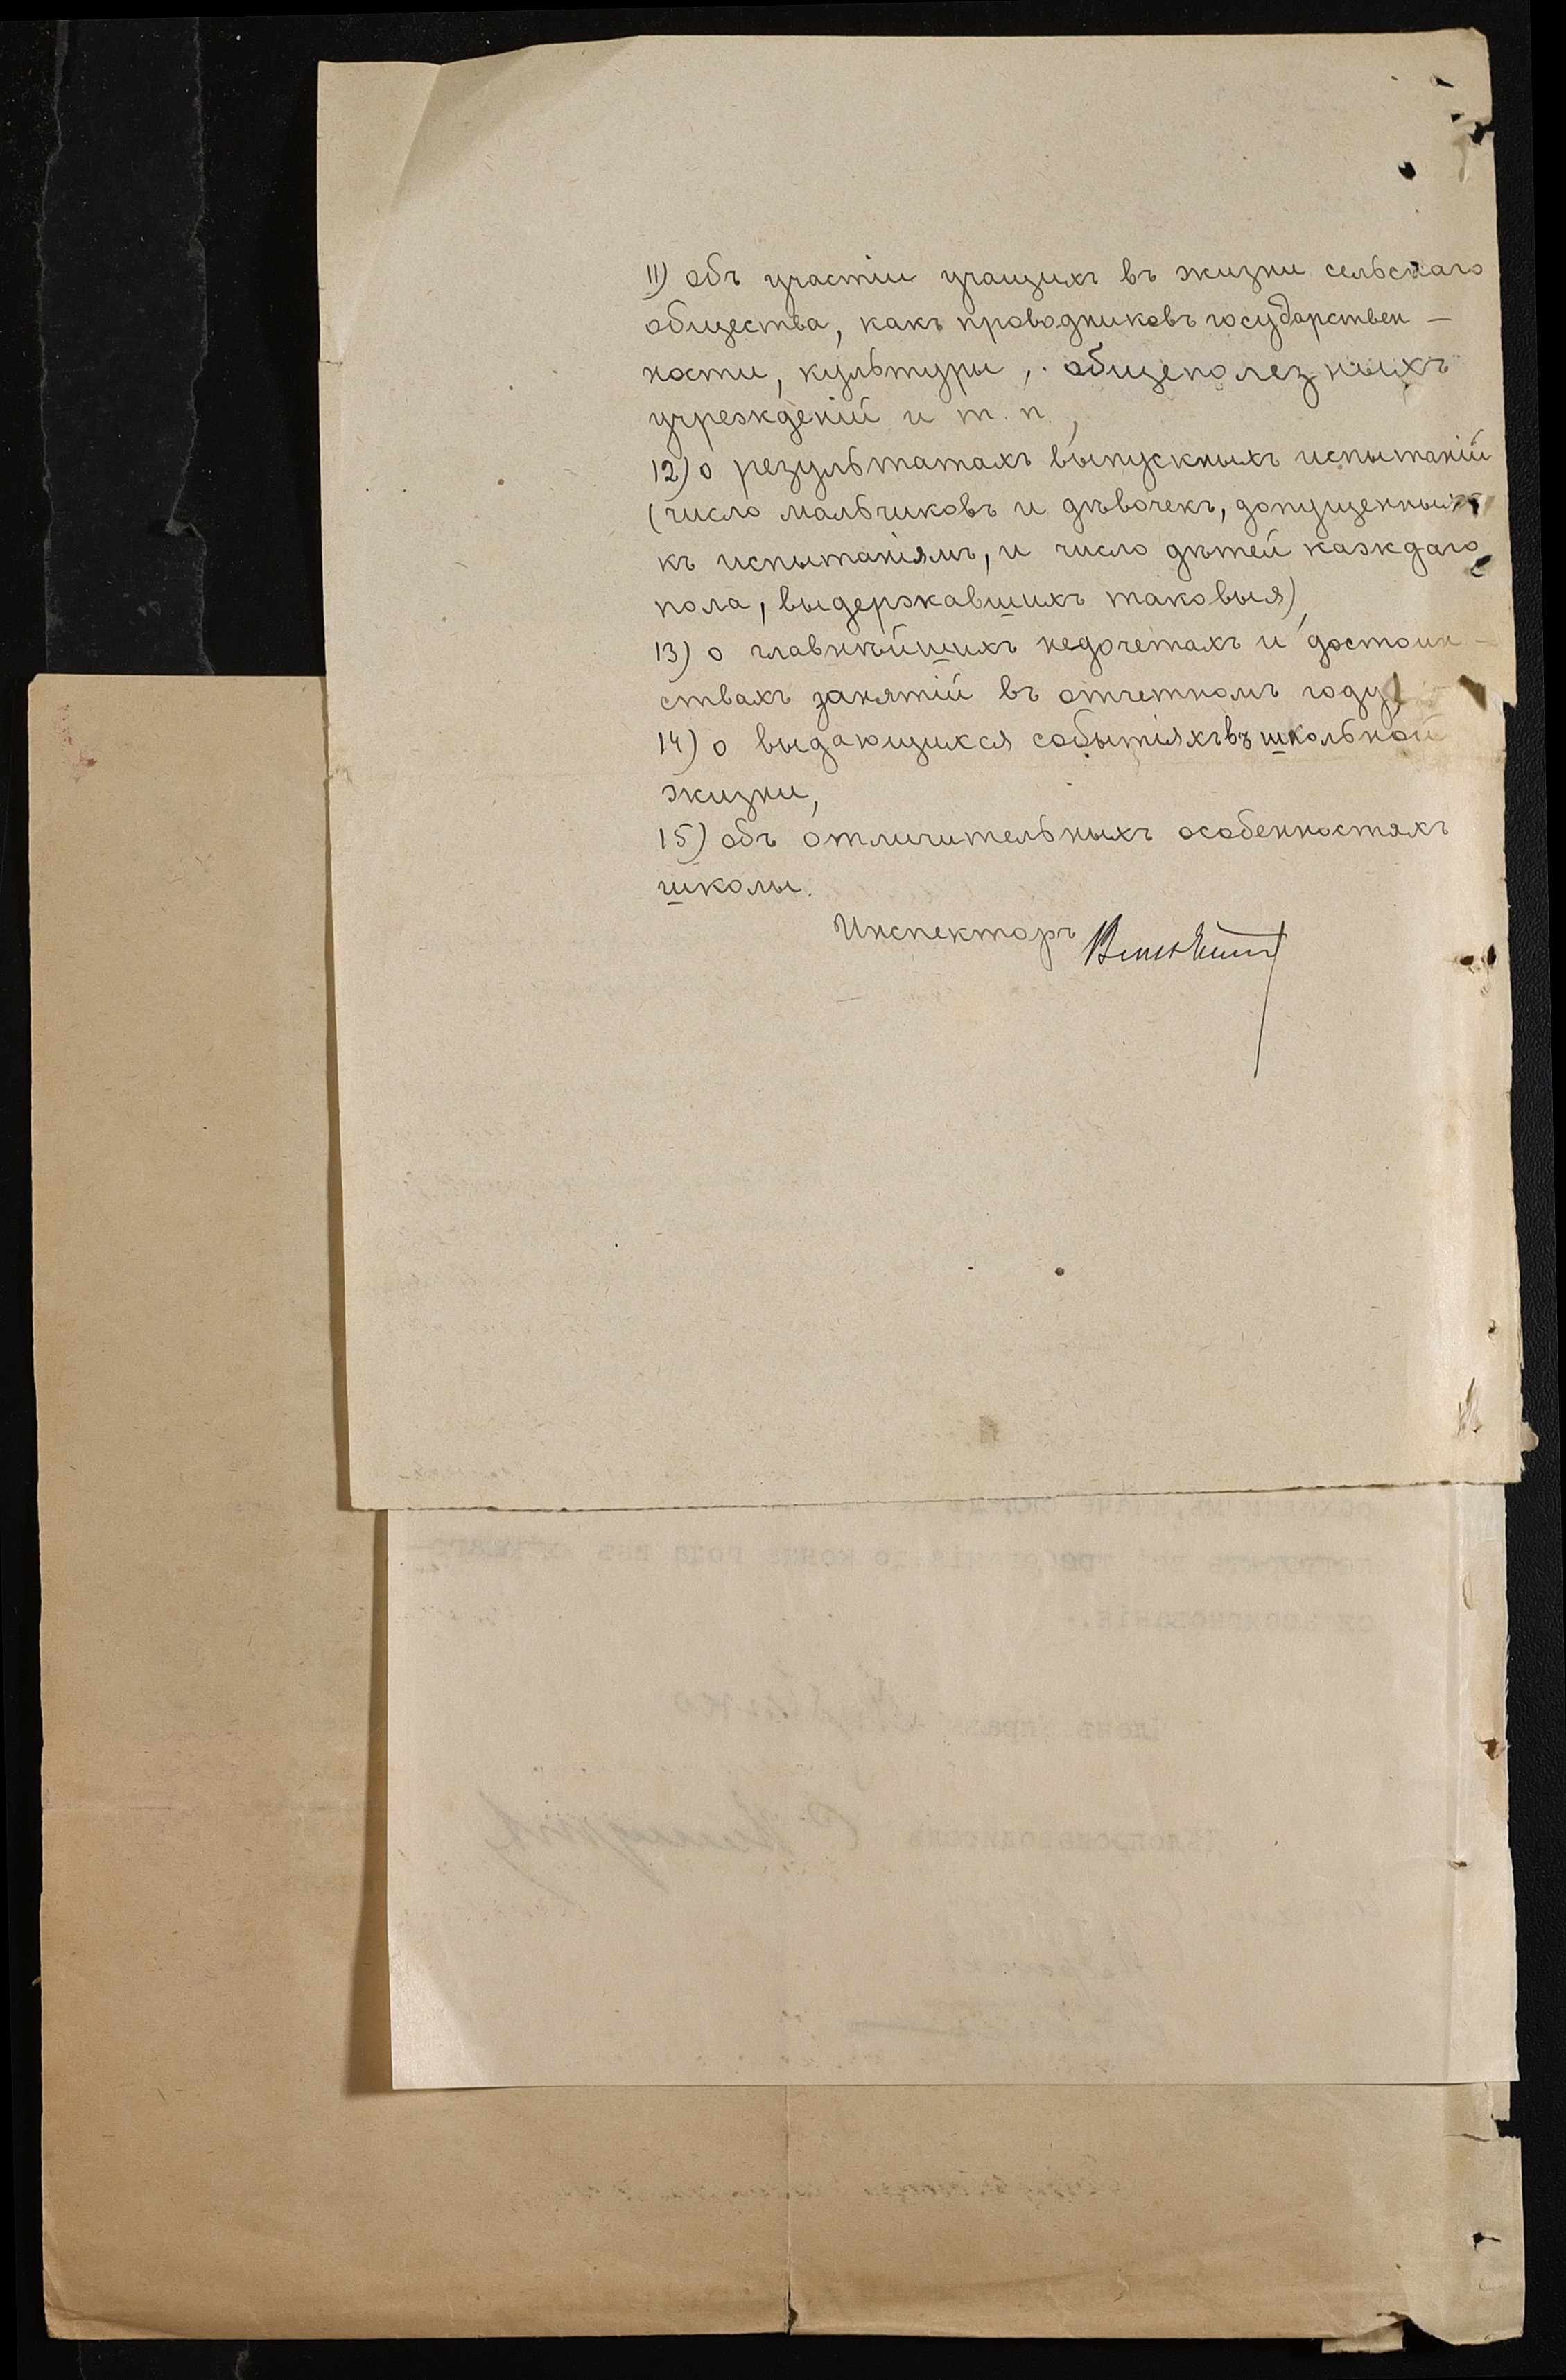 11) объ участіи учащихъ въ жизни сельскаго
общества, какъ проводниковъ государствен-
ности, культуры, общеполезныхъ
учрежденій и т. п.,
12) о результатахъ выпускныхъ испытаній
(число мальчиковъ и дѣвочекъ, допущенныхъ
къ испытаніямъ, и число дѣтей каждаго
пола, выдержавшихъ таковыя),
13) о главнѣйшихъ недочетахъ и достоин-
ствахъ занятій въ отчетномъ году,
14) о выдающихся событіяхъ въ школьной
жизни,
15) объ отличительныхъ особенностяхъ
школы.
Инспекторъ
до конца года
Членъ
Дѣлопроизводитель